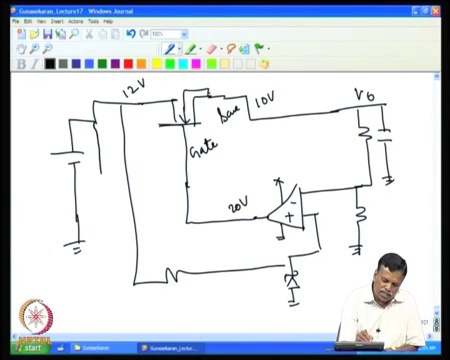 Gunasekaran_Lecture17 - Windows Journal
File Edit View Insert Actions Tools Help
100%
12V
10V
Vo
Base
Gate
20V
-
+
NPTEL
start
Gunasekaran
Gunasekaran_Lec...